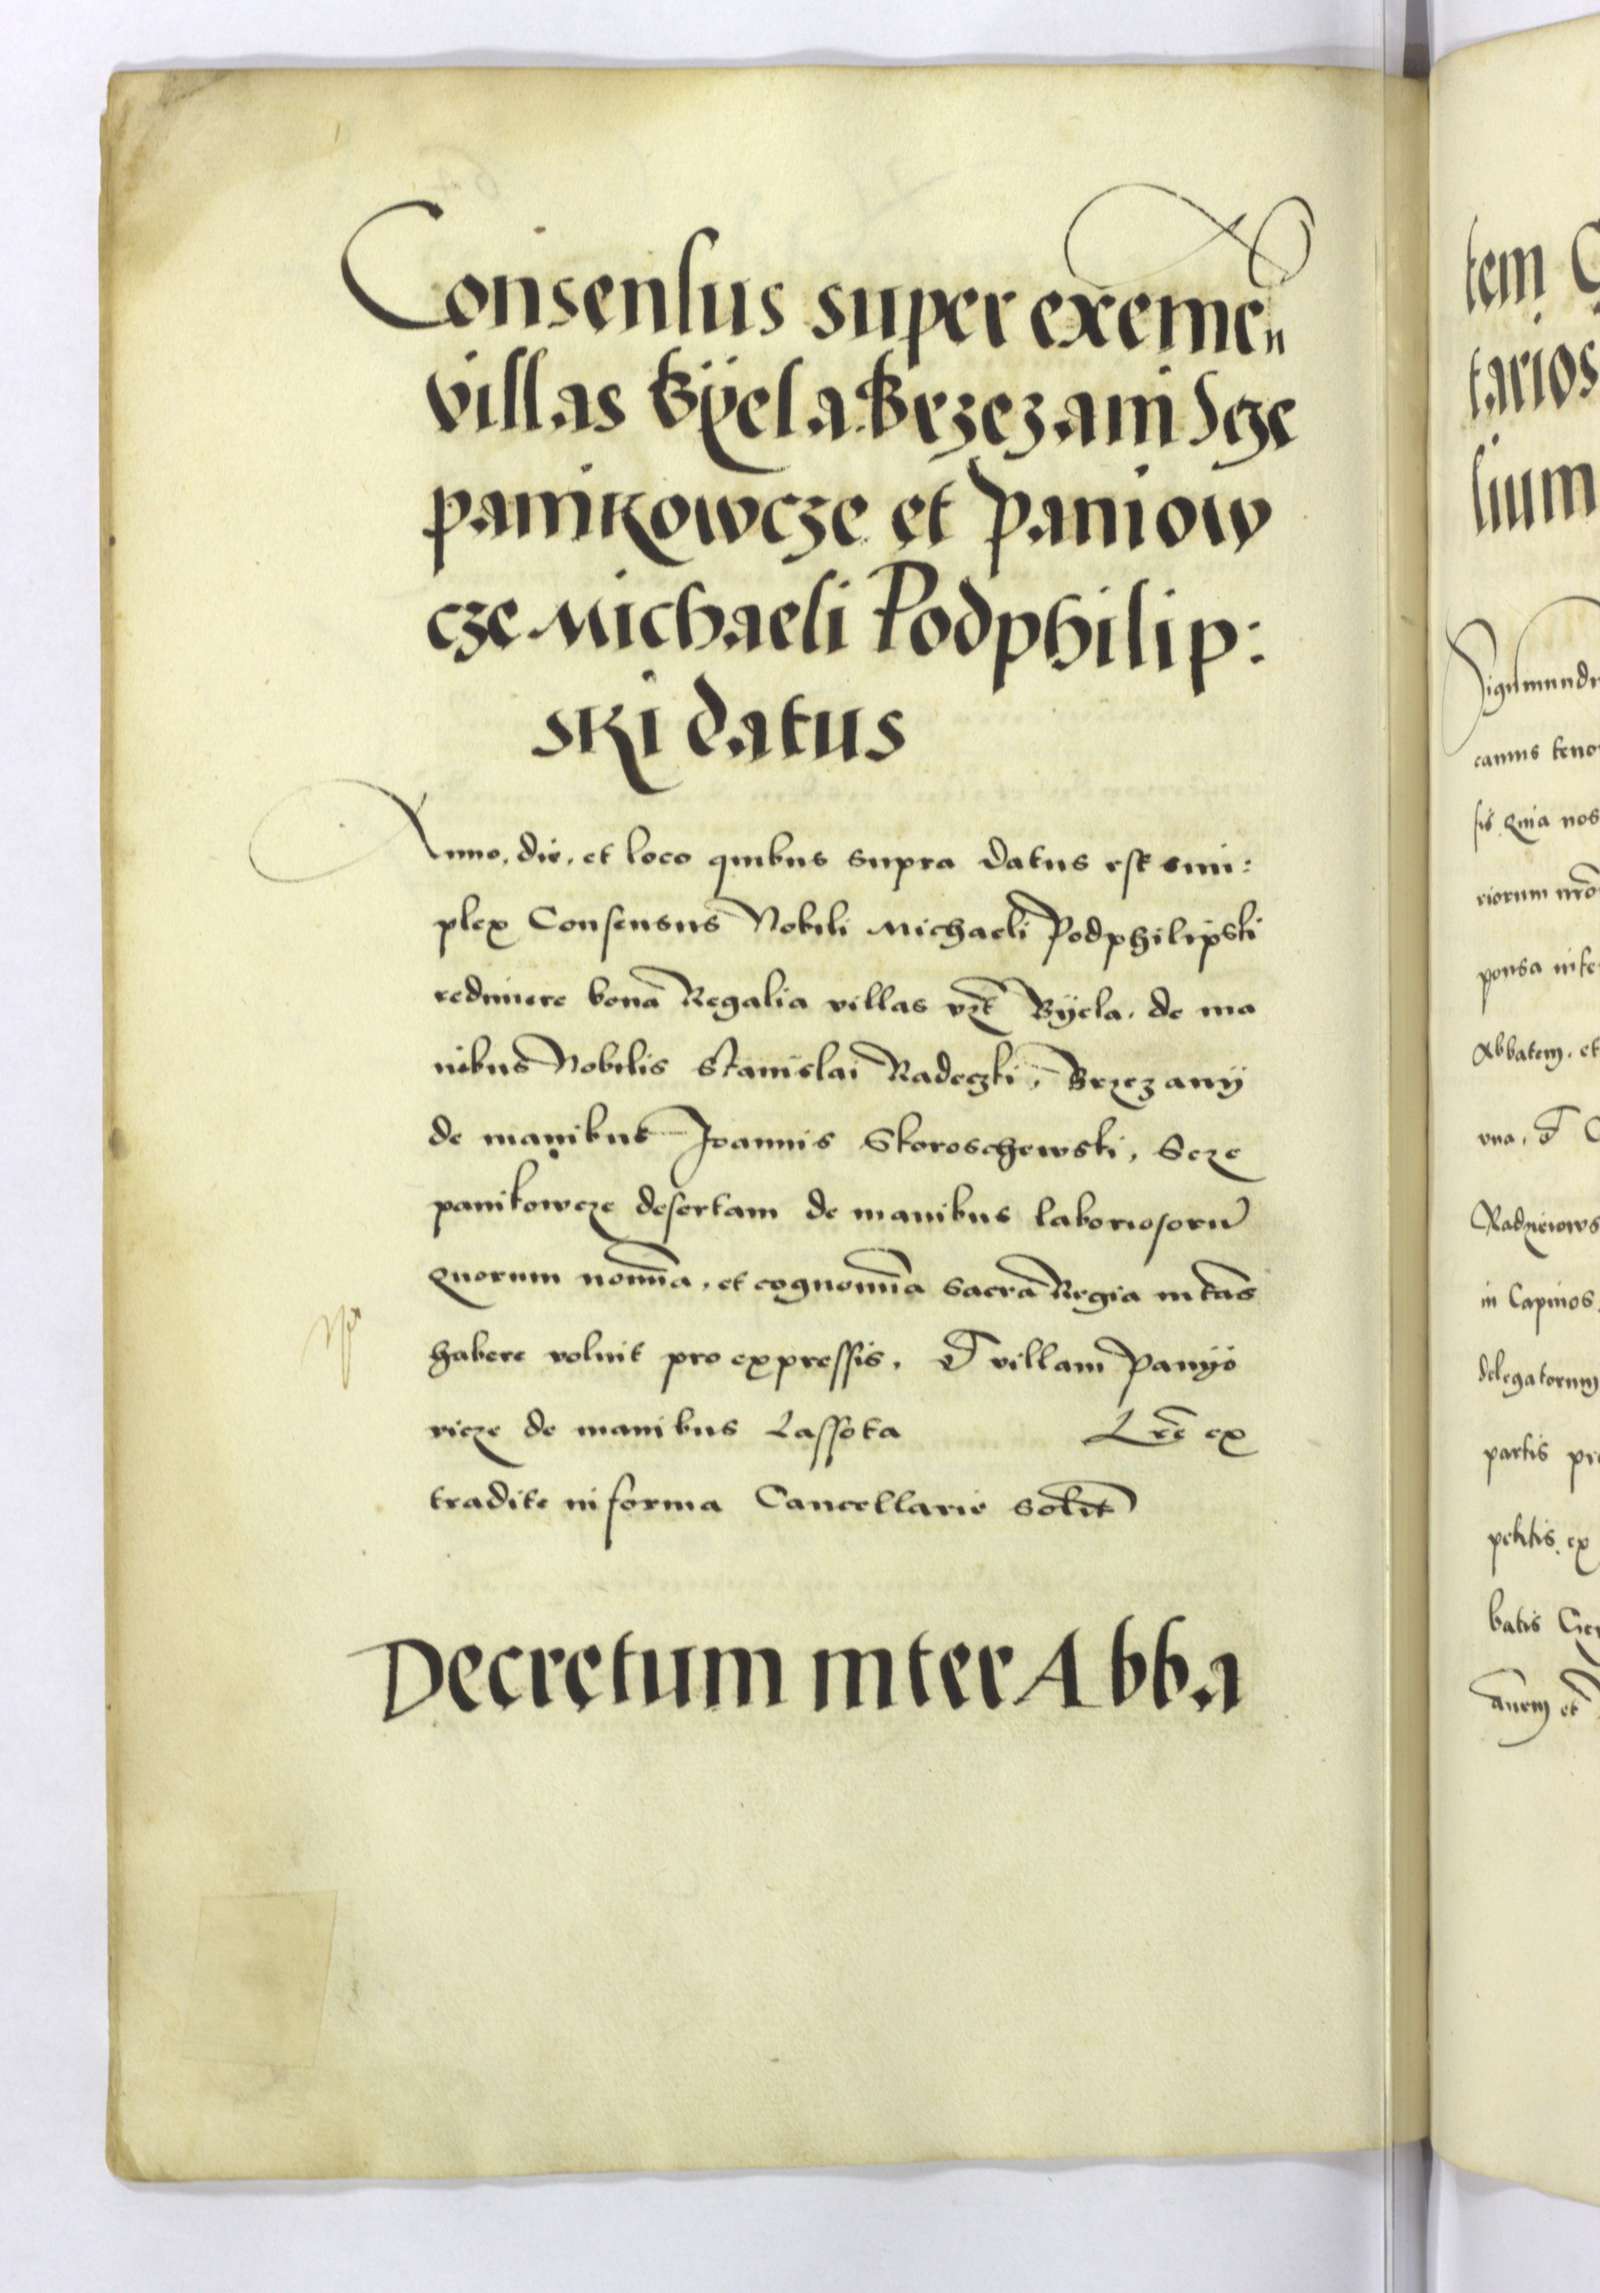 Consensus super exemen
villas Bÿela Brzezani Scze
panikowcze et Paniow
cze Michaeli Podphilip:
ski datus
Anno, die, et loco quibus supra datus est sim:
plex Consensus Nobili Michaeli Podphilipski
redimere bona Regalia villas vzt Bÿela, de ma
nibus Nobilis Stanislai Radeczki, Brzezanÿ
de manibus Joannis Skoroschewski, Scze
panikowcze desertam de manibus laboriosorū
quorum nomīa, et cognomīa sacra Regia mtās
habere voluit pro expressis, Et villam Panÿo
vicze de manibus Lassota Lrē ex
tradite in forma Cancellarie solit
Decretum inter Abba
tem
tarios
lium
Sigismundu
camus teno
sis, Quia nos
riorum nrō
ponsa
Abbatem, et
vna, Et
Radzieiows
in Capinos
delegatorum
partis pr
petitis, ex
batis
et